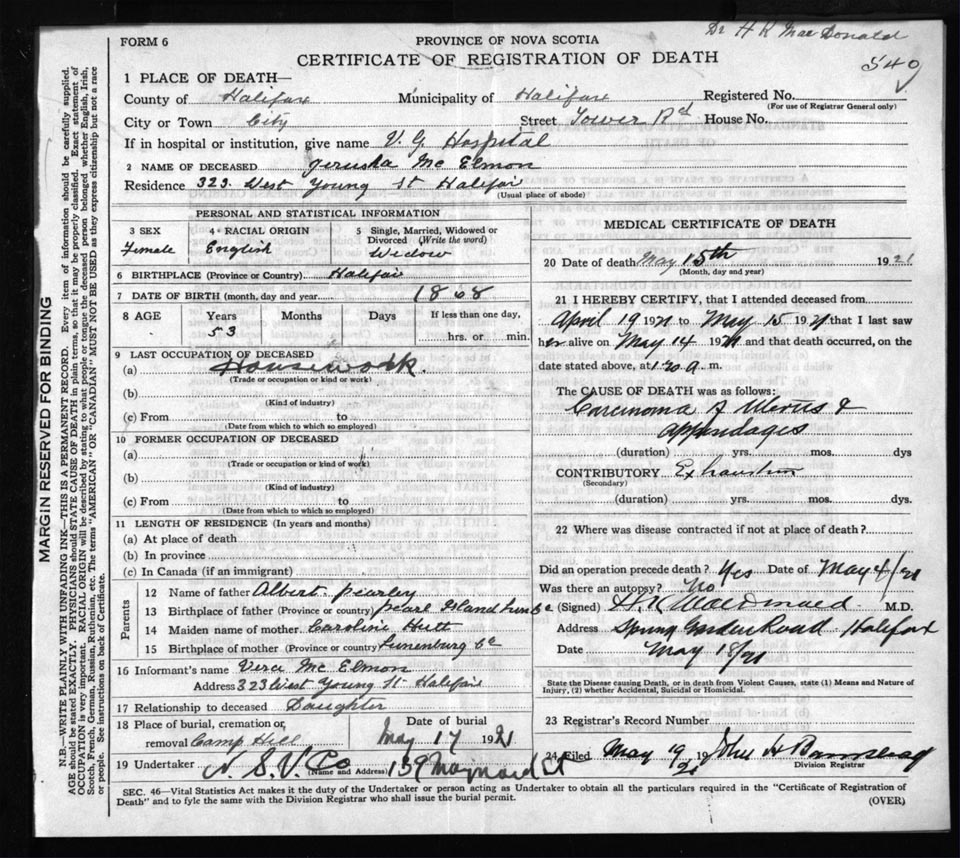 Dr H K MacDonald
FORM 6
PROVINCE OF NOVA SCOTIA
CERTIFICATE OF REGISTRATION OF DEATH
540
1 PLACE OF DEATH—
County of Halifax Municipality of Halifax Registered No.
(For use of Registrar General only)
City or Town City Street Tower Rd House No.
If in hospital or institution, give name V. G. Hospital
2 NAME OF DECEASED Jerusha Mc Elmon
Residence 323 West Young St Halifax
(Usual place of abode)
PERSONAL AND STATISTICAL INFORMATION
3 SEX 4 RACIAL ORIGIN 5 Single, Married, Widowed or Divorced (Write the word)
Female English Widow
6 BIRTHPLACE (Province or Country) Halifax
7 DATE OF BIRTH (month, day and year) 1868
8 AGE Years Months Days If less than one day,
53 hrs. or min.
9 LAST OCCUPATION OF DECEASED
(a) Housework.
(Trade or occupation or kind or work)
(b)
(Kind of industry)
(c) From to
(Date from which to which so employed)
10 FORMER OCCUPATION OF DECEASED
(a)
(Trade or occupation or kind of work)
(b)
(Kind of industry)
(c) From to
(Date from which to which so employed)
11 LENGTH OF RESIDENCE (In years and months)
(a) At place of death
(b) In province
(c) In Canada (if an immigrant)
Parents
12 Name of father Albert Pearley
13 Birthplace of father (Province or country) Pearl Island
14 Maiden name of mother Caroline Hutt
15 Birthplace of mother (Province or country) Lunenburg Co
16 Informant's name Vera Mc Elmon
Address 323 West Young St Halifax
17 Relationship to deceased Daughter
18 Place of burial, cremation or removal Camp Hill Date of burial May 17 1921
19 Undertaker N. S. U. Co 139 Maynard St
(Name and Address)
MEDICAL CERTIFICATE OF DEATH
20 Date of death May 15th 1921
(Month, day and year)
21 I HEREBY CERTIFY, that I attended deceased from
April 19 1921 to May 15 1921 that I last saw
her alive on May 14 1921 and that death occurred, on the
date stated above, at 1 20 a. m.
The CAUSE OF DEATH was as follows:
Carcinoma of Uterus &
appendages
(duration) yrs. mos. dys
CONTRIBUTORY Exhaustion
(Secondary)
(duration) yrs. mos. dys.
22 Where was disease contracted if not at place of death?
Did an operation precede death? Yes Date of May 4/21
Was there an autopsy? No
(Signed) H K MacDonald M.D.
Address Spring Garden Road Halifax
Date May 18/21
State the Disease causing Death, or in death from Violent Causes, state (1) Means and Nature of
Injury, (2) whether Accidental, Suicidal or Homicidal.
23 Registrar's Record Number
24 Filed May 19 1921 John H
Division Registrar
SEC. 46—Vital Statistics Act makes it the duty of the Undertaker or person acting as Undertaker to obtain all the particulars required in the "Certificate of Registration of
Death" and to fyle the same with the Division Registrar who shall issue the burial permit.
(OVER)
MARGIN RESERVED FOR BINDING
N.B.—WRITE PLAINLY WITH UNFADING INK—THIS IS A PERMANENT RECORD. Every item of information should be carefully supplied.
AGE should be stated EXACTLY. PHYSICIANS should STATE CAUSE OF DEATH in plain terms, so that it may be properly classified. Exact statement of
OCCUPATION is very important. RACIAL ORIGIN will be described by stating to what people or tongue the deceased person belonged whether English, Irish,
Scotch, French, German, Russian, Ruthenian, etc. The terms "AMERICAN" OR "CANADIAN" MUST NOT BE USED as they express citizenship but not a race
or people. See instructions on back of Certificate.